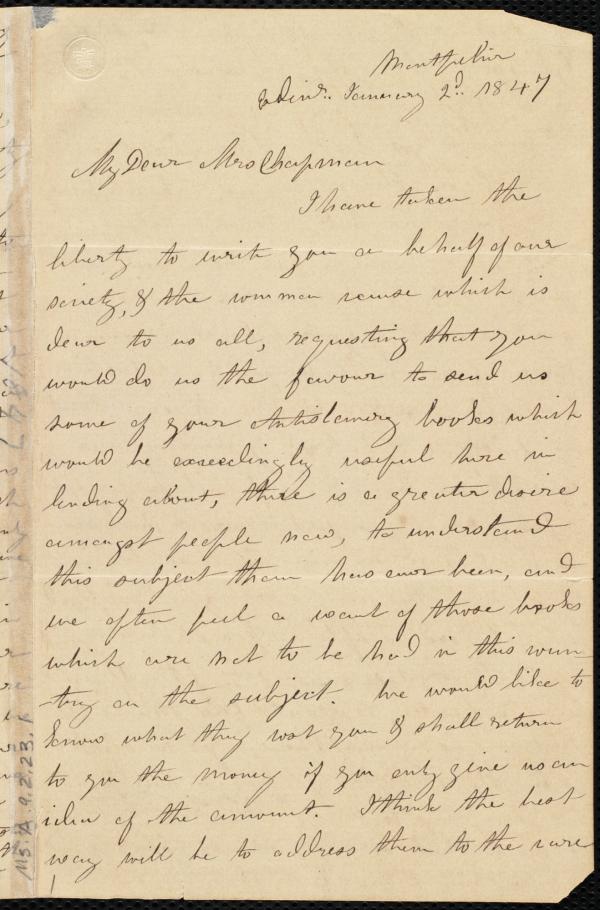 Montpelier
Edinr. January 2d. 1847
My Dear Mrs Chapman
I have taken the
liberty to write you on behalf of our
society, & the common cause which is
dear to us all, requesting that you
would do us the favour to send us
some of your Antislavery books which
would be exceedingly useful here in
lending about, there is a greater desire
amongst people now, to understand
this subject than has ever been, and
we often feel a want of those books
which are not to be had in this coun
-try on the subject. We would like to
know what they cost you & shall return
to you the money if you only give us an
idea of the amount. I think the best
way will be to address them to the care
MS. A. 9.2.23.